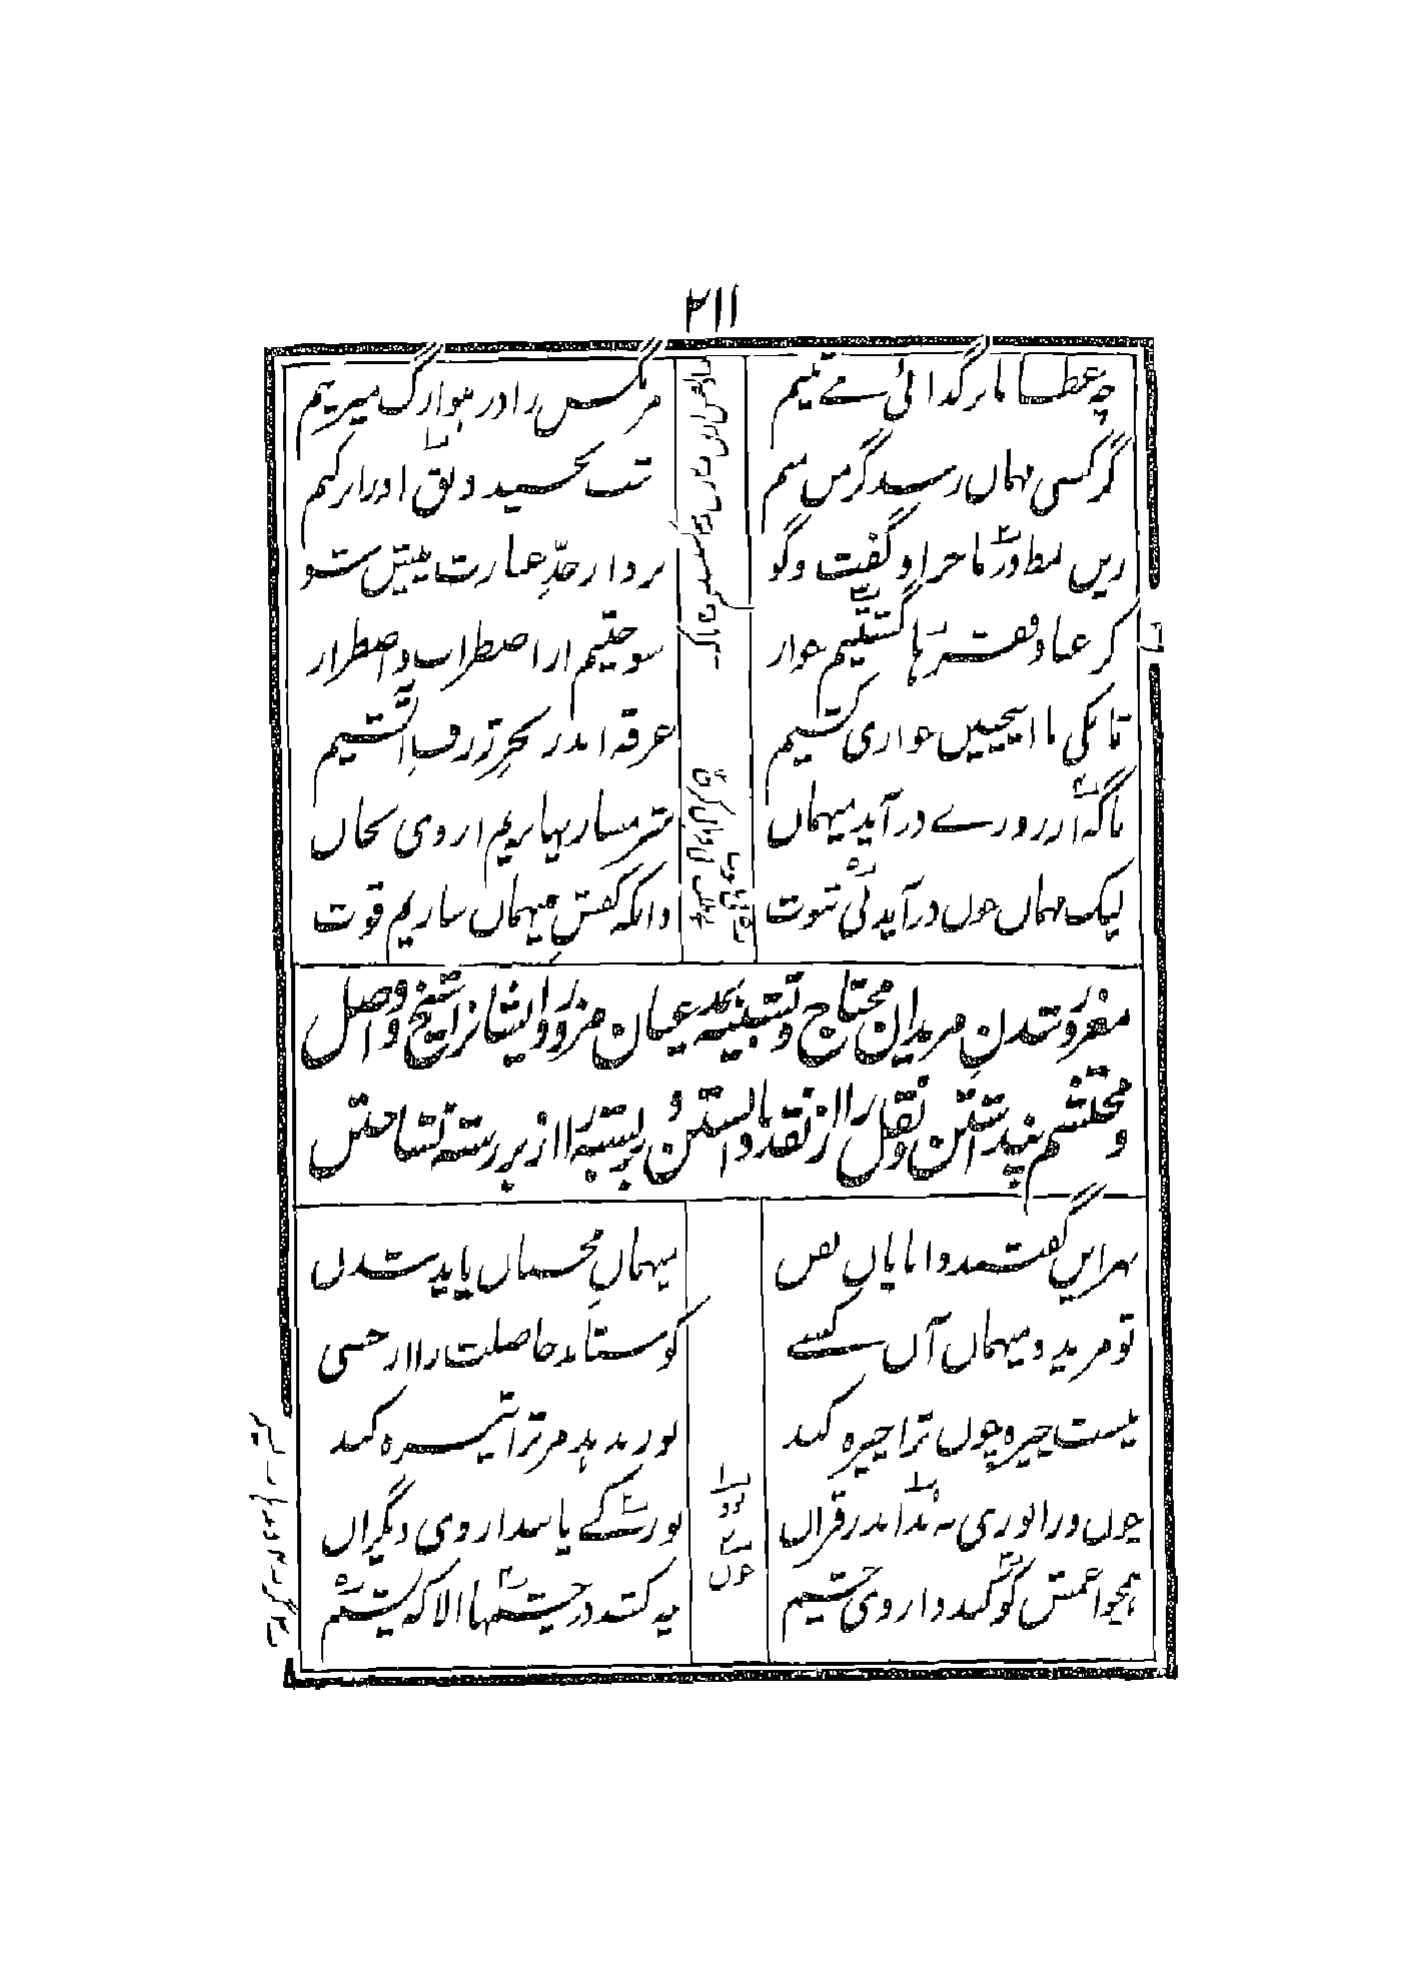 ۲۱۱
چه عطا ما بر گدائی مے تنیم
مر مگس را در هوا رگ میزنیم
گر کسی مهماں رسد گر من منم
شب بخسپد دلق او را بر کنم
زیں نمط زد ماجرا و گفت و گو
برد از حدّ عبارت پیش شو
کز عنا و فقر ما گشتیم خوار
سوختیم از اضطراب و اضطرار
تا بکی ما ایچنیں خواری کشیم
غرقه اندر بحر ژرف آتشیم
ناگه ار روزے در آید میهماں
شرمساریها بریم از وی بجاں
لیک مهماں چوں در آید بی ثبوت
دانکه کفش میهماں سازیم قوت
مغرور شدن مریدان محتاج و تشبیه بمدعیان مزور و ایشانرا شیخ و واصل
و محتشم پنداشتن و نقل را از نقد دانستن و بر بسته را از بر رسته نشناختن
بهر ایں گفتند دانایاں بفن
میهمان محسناں باید شدن
تو مرید و میهمان آں کسے
کو ستاند حاصلت را از خسی
نیست چیره چوں ترا چیره کند
نور ندهد مر ترا تیره کند
چوں ورا نوری نه بد اندر قراں
نور کے یابند از وی دیگراں
همچو اعمش کو کند داروی چشم
چه کشد در چشمها الا که یشم